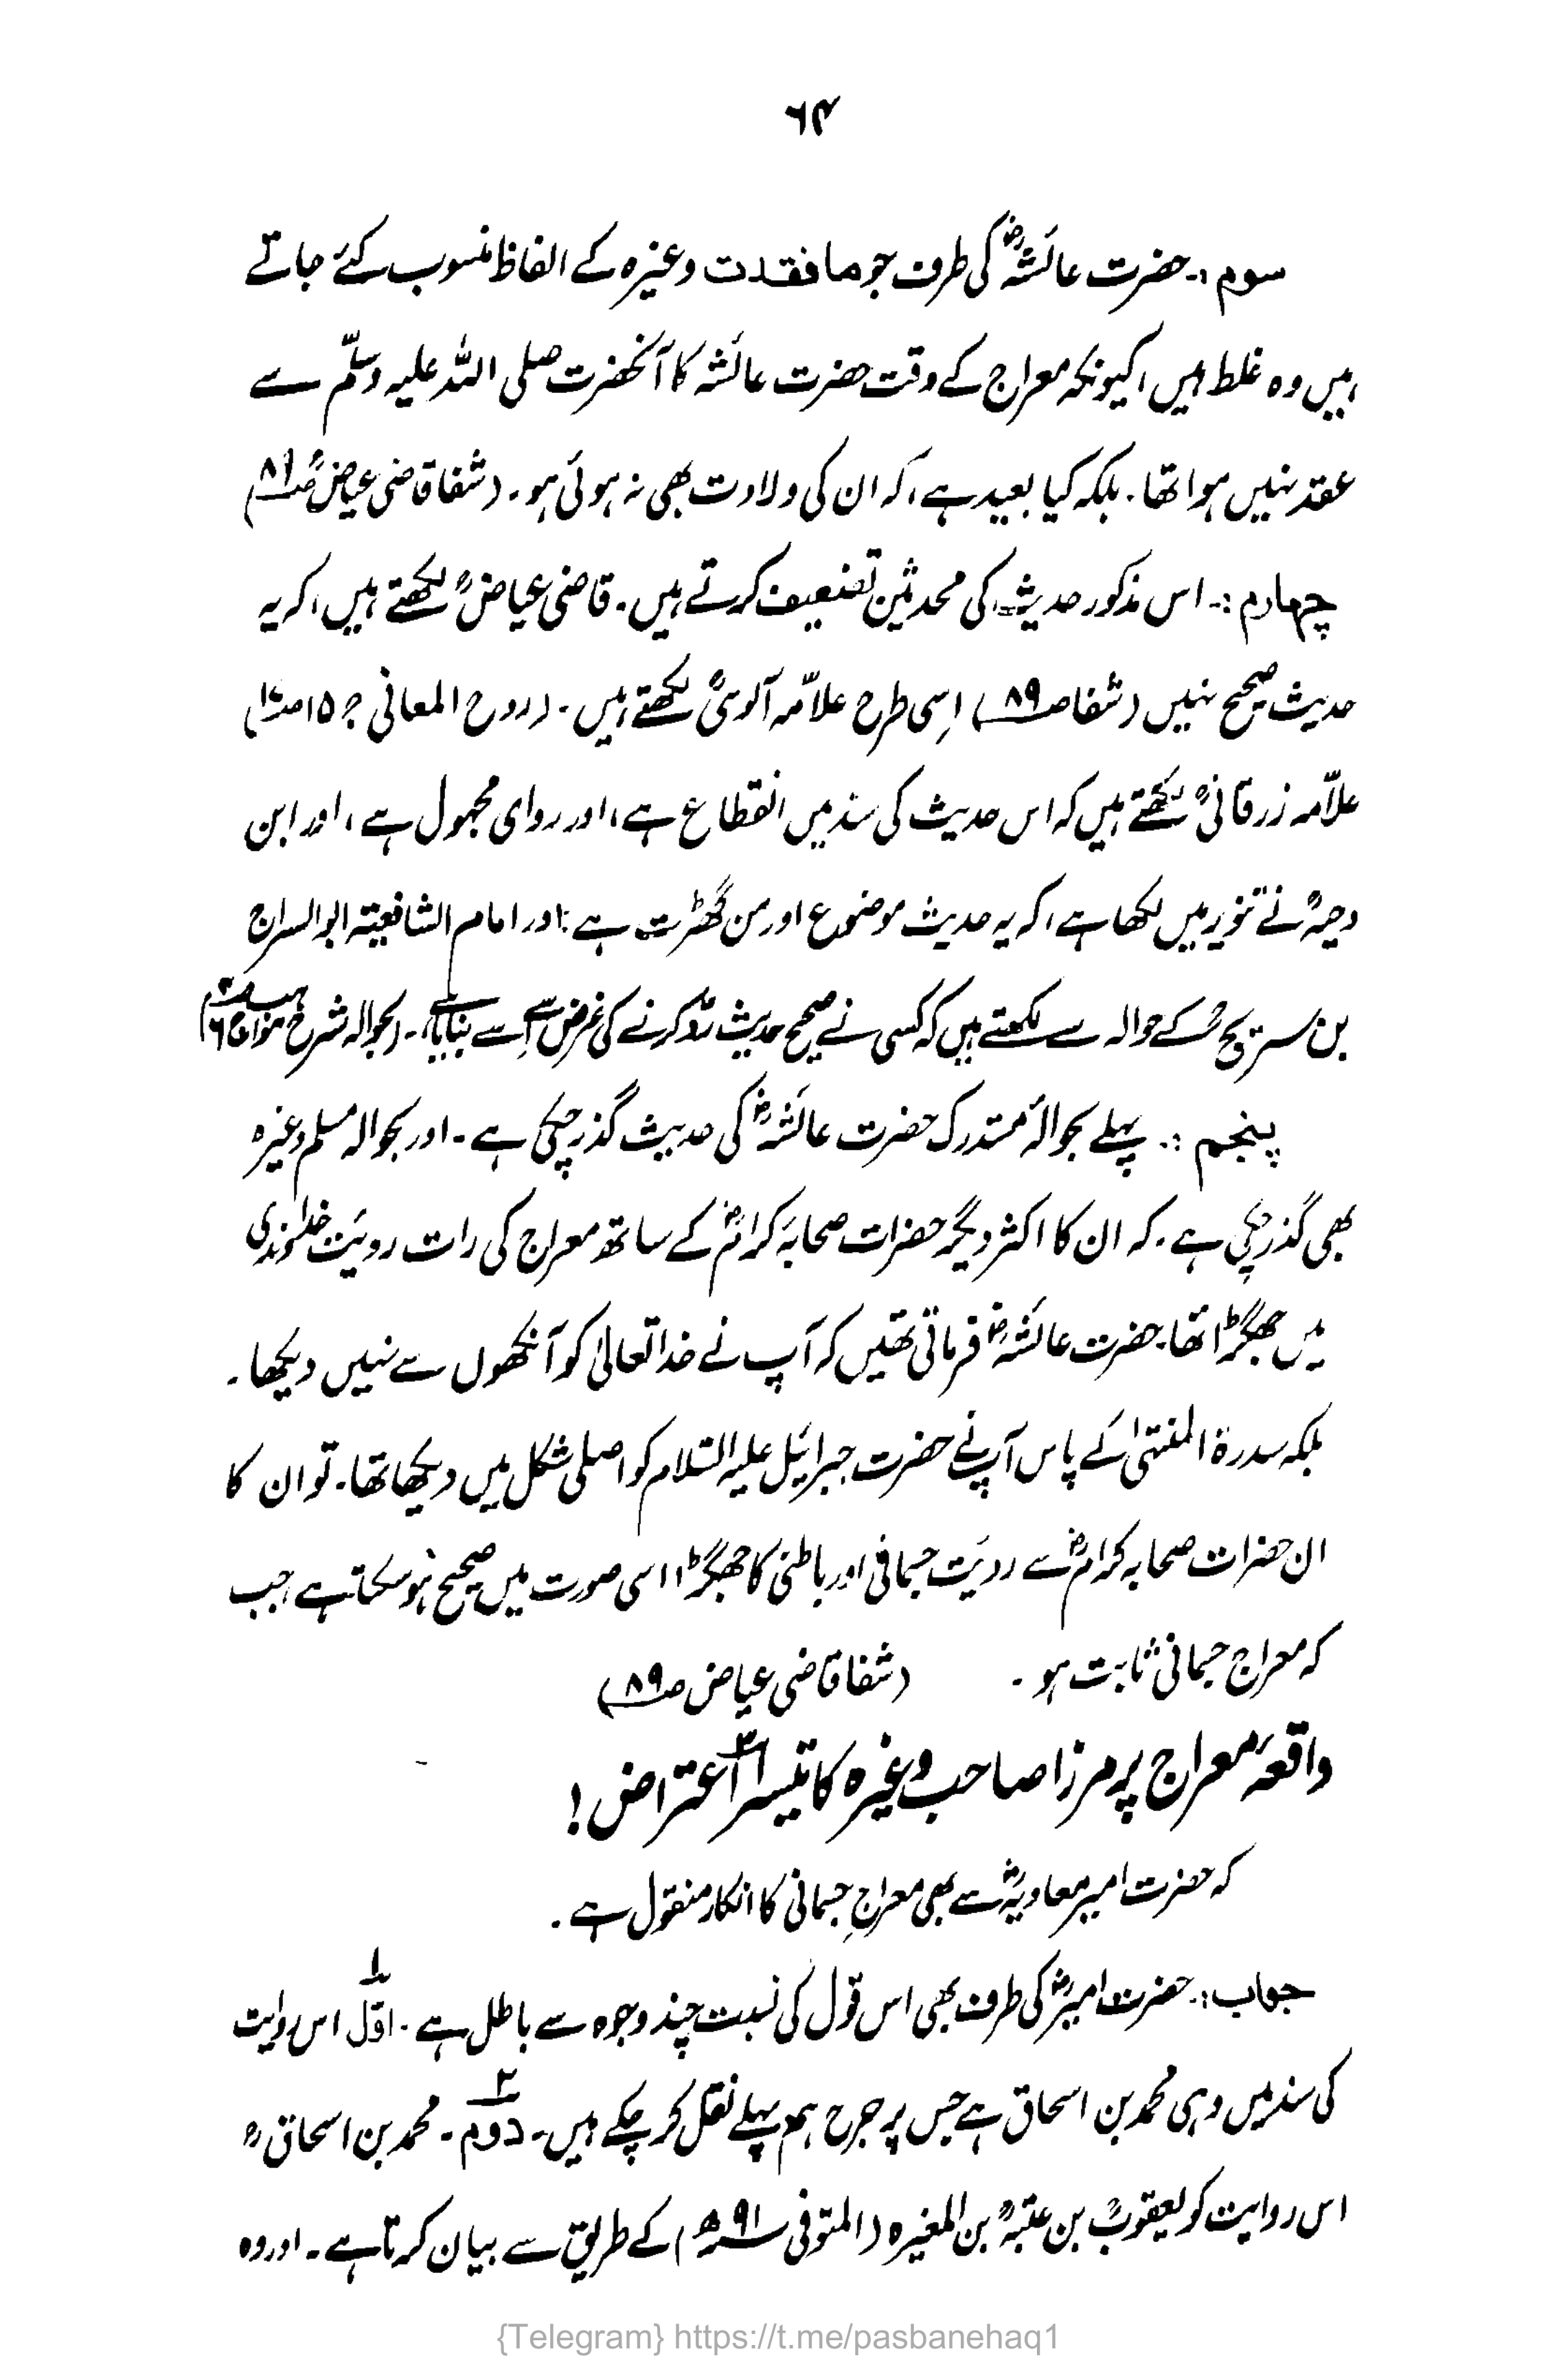 ٦٤
سوم :۔ حضرت عائشہؓ کی طرف جو مافقدت وغیرہ کے الفاظ منسوب کئے جاتے
ہیں وہ غلط ہیں، کیونکہ معراج کے وقت حضرت عائشہ کا آنحضرت صلی اللہ علیہ وسلّم سے
عقد نہیں ہوا تھا۔ بلکہ کیا بعید ہے، کہ ان کی ولادت بھی نہ ہوئی ہو۔ (شفا قاضی عیاضؒ
چہارم :۔ اس مذکور حدیث کی محدثین تضعیف کرتے ہیں۔ قاضی عیاضؒ لکھتے ہیں، کہ یہ
حدیث صحیح نہیں (شفا صـ۸۹) اِسی طرح علاّمہ آلوسیؒ لکھتے ہیں۔ (روح المعانی ج ۱۵
علاّمہ زرقانیؒ لکھتے ہیں کہ اس حدیث کی سند میں انقطاع ہے، اور روای مجہول ہے، اور ابن
دحیہؒ نے تنویر میں لکھا ہے، کہ یہ حدیث موضوع اور من گھڑت ہے؛ اور امام الشافعیتہ ابوالسراج
بن سریجؒ کے حوالہ سے لکھتے ہیں کہ کسی نے صحیح حدیث ردّ کرنے کی غرض سے اِسے بنایا ہے۔ (بحوالہ شرح
پنجم :۔ پہلے بحوالۂ مستدرک حضرت عائشہؓ کی حدیث گذر چکی ہے۔ اور بحوالہ مسلم وغیرہ
بھی گذر چکی ہے۔ کہ ان کا اکثر دیگر حضرات صحابۂ کرامؓ کے ساتھ معراج کی رات رویَت خداوندی
میں جھگڑا تھا۔ حضرت عائشہؓ فرماتی تھیں کہ آپ نے خدا تعالیٰ کو آنکھوں سے نہیں دیکھا۔
بلکہ سدرۃ المنتہیٰ کے پاس آپ نے حضرت جبرائیل علیہ السّلام کو اصلی شکل میں دیکھا تھا۔ تو ان کا
ان حضرات صحابہ کرامؓ سے رویَت جسمانی اور باطنی کا جھگڑا اسی صورت میں صحیح ہو سکتا ہے جب
کہ معراج جسمانی ثابت ہو۔ (شفا قاضی عیاض صـ۸۹)
واقعۂ معراج پر مرزا صاحب وغیرہ کا تیسرا ۳ اعتراض!
کہ حضرت امیر معاویہؓ سے بھی معراجِ جسمانی کا انکار منقول ہے۔
جواب :۔ حضرت امیرؓ کی طرف بھی اس قول کی نسبت چند وجوہ سے باطل ہے۔ اوّل ۱ اس روایت
کی سند میں وہی محمد بن اسحاق ہے جس پر جرح ہم پہلے نقل کر چکے ہیں۔ دوم ۲۔ محمد بن اسحاقؒ
اس روایت کو یعقوبؒ بن عتبہؒ بن المغیرہ (المتوفی کے طریق سے بیان کرتا ہے۔ اور وہ
{Telegram} https://t.me/pasbanehaq1